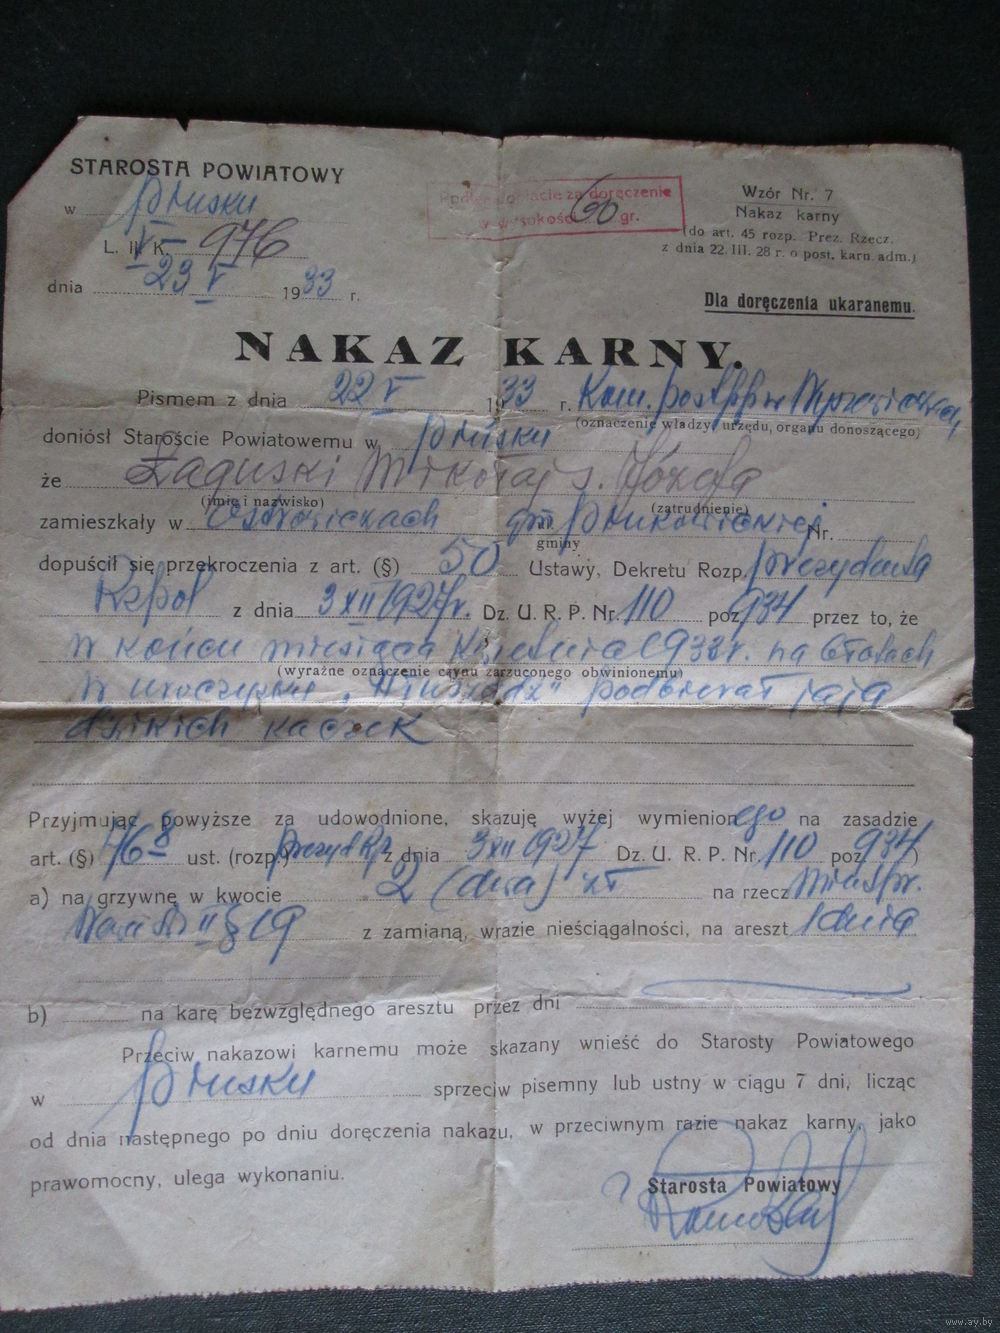 STAROSTA POWIATOWY
w Prusku
L. II K. V – 976
dnia 23 V 1933 r.
Podlega opłacie za doręczenie
w wysokości 60 gr.
Wzór Nr. 7
Nakaz karny
(do art. 45 rozp. Prez. Rzecz.
z dnia 22. III. 28 r. o post. karn. adm.)
Dla doręczenia ukaranemu.
NAKAZ KARNY.
Pismem z dnia 22 V 1933 r. Kom. post. PP w
(oznaczenie władzy, urzędu, organu donoszącego)
doniósł Staroście Powiatowemu w Prusku
że Łaguski Mikołaj s. Józefa
(imię i nazwisko) (zatrudnienie)
zamieszkały w gm. Nr.
gminy
dopuścił się przekroczenia z art. (§) 50 Ustawy, Dekretu Rozp. Prezydenta
Rzpol z dnia 3 XII 1927 r. Dz. U. R. P. Nr. 110 poz 934 przez to, że
w końcu miesiąca kwietnia 1933 r. na błotach
(wyraźne oznaczenie czynu zarzuconego obwinionemu)
w uroczysku podbierał jaja
dzikich kaczek
Przyjmując powyższe za udowodnione, skazuję wyżej wymienionego na zasadzie
art. (§) ust. (rozp.) Prezyd Rp z dnia 3 XII 1927 Dz. U. R. P. Nr. 110 poz 934)
a) na grzywnę w kwocie 2 (dwa) zł na rzecz
II § 19 z zamianą, wrazie nieściągalności, na areszt 1 dnia
b) na karę bezwzględnego aresztu przez dni
Przeciw nakazowi karnemu może skazany wnieść do Starosty Powiatowego
w Prusku sprzeciw pisemny lub ustny w ciągu 7 dni, licząc
od dnia następnego po dniu doręczenia nakazu, w przeciwnym razie nakaz karny, jako
prawomocny, ulega wykonaniu.
Starosta Powiatowy
www.ay.by